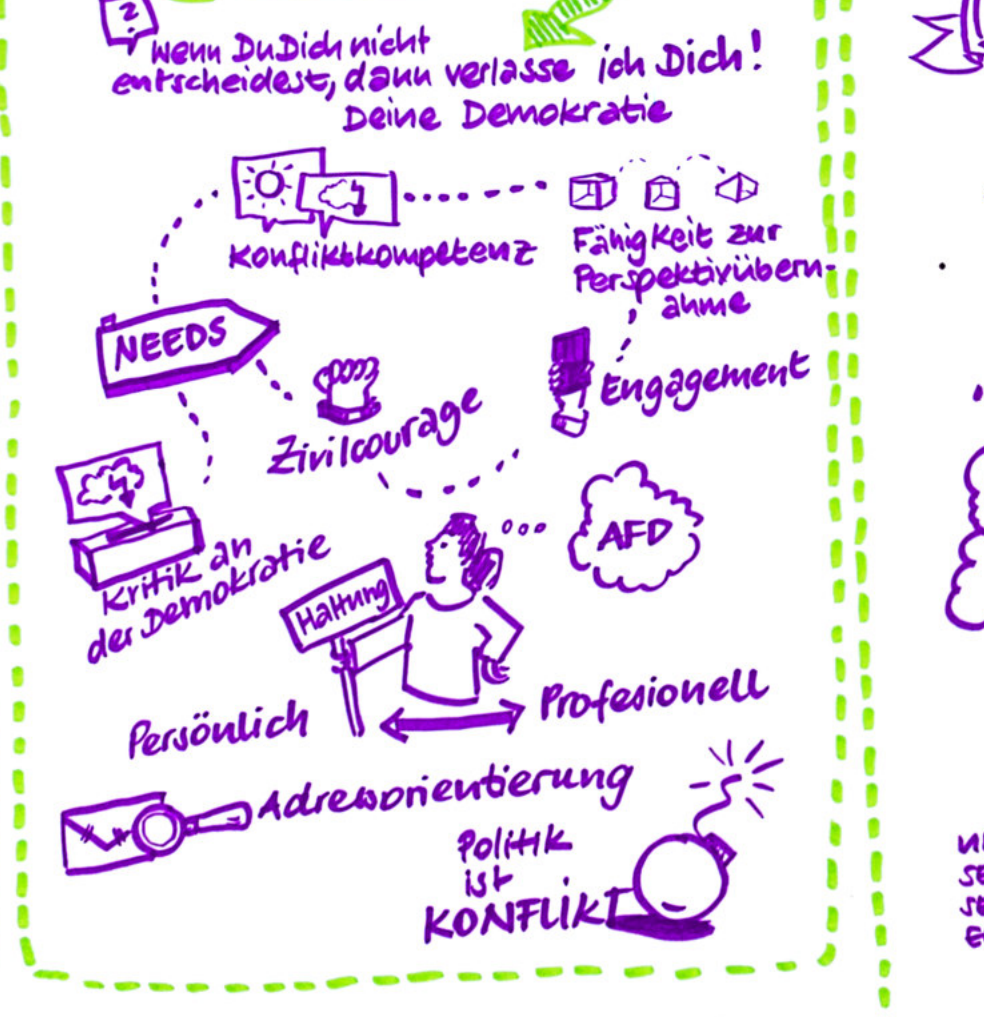 ?
Wenn Du Dich nicht
entscheidest, dann verlasse ich Dich!
Deine Demokratie
Konfliktkompetenz
Fähigkeit zur
Perspektivübern-
ahme
NEEDS
Zivilcourage
Engagement
Kritik an
der Demokratie
AFD
Haltung
Persönlich
Profesionell
Adressorientierung
Politik
ist
KONFLIKT